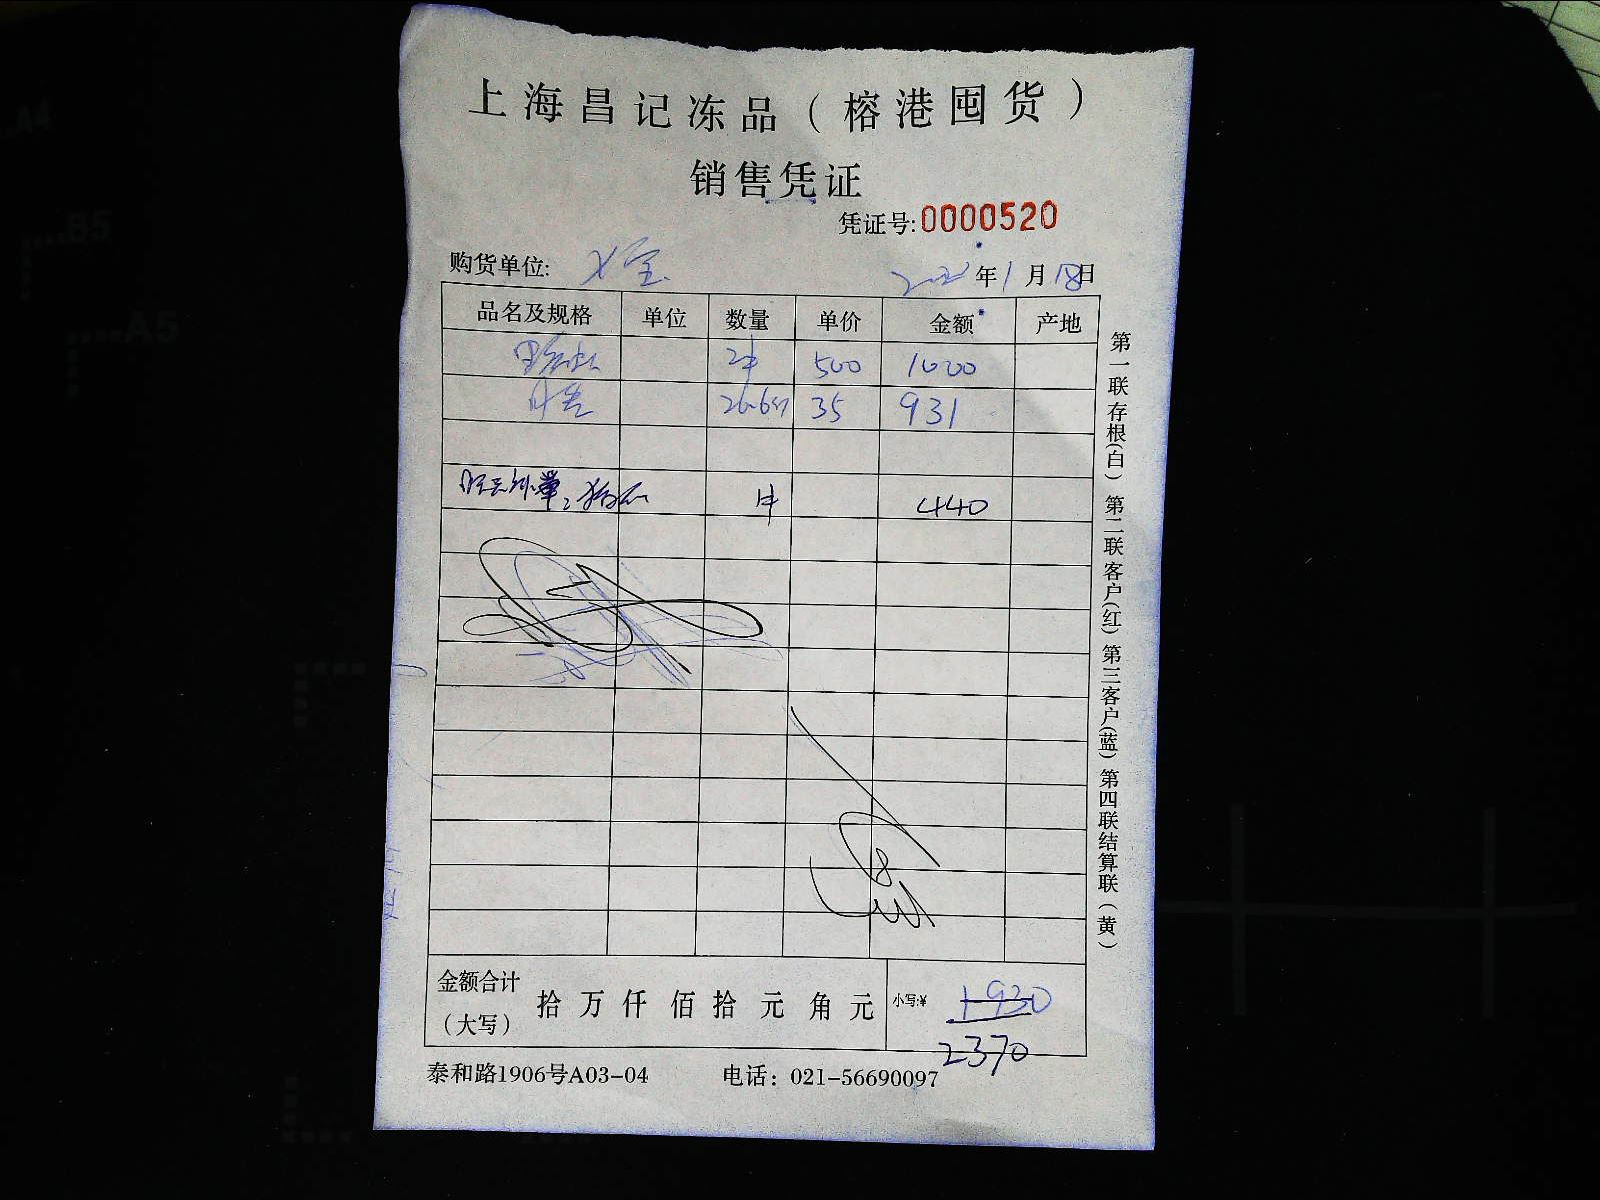 上海昌记冻品（榕港囤货）
销售凭证
凭证号:0000520
购货单位:
年1月18日
品名及规格 单位 数量 单价 金额 产地
2件 500 1000
26.6 35 931
1件 440
金额合计（大写） 拾 万 仟 佰 拾 元 角 元 小写:¥ 1930
2370
泰和路1906号A03-04 电话：021-56690097
第一联存根(白) 第二联客户(红) 第三客户(蓝) 第四联结算联(黄)